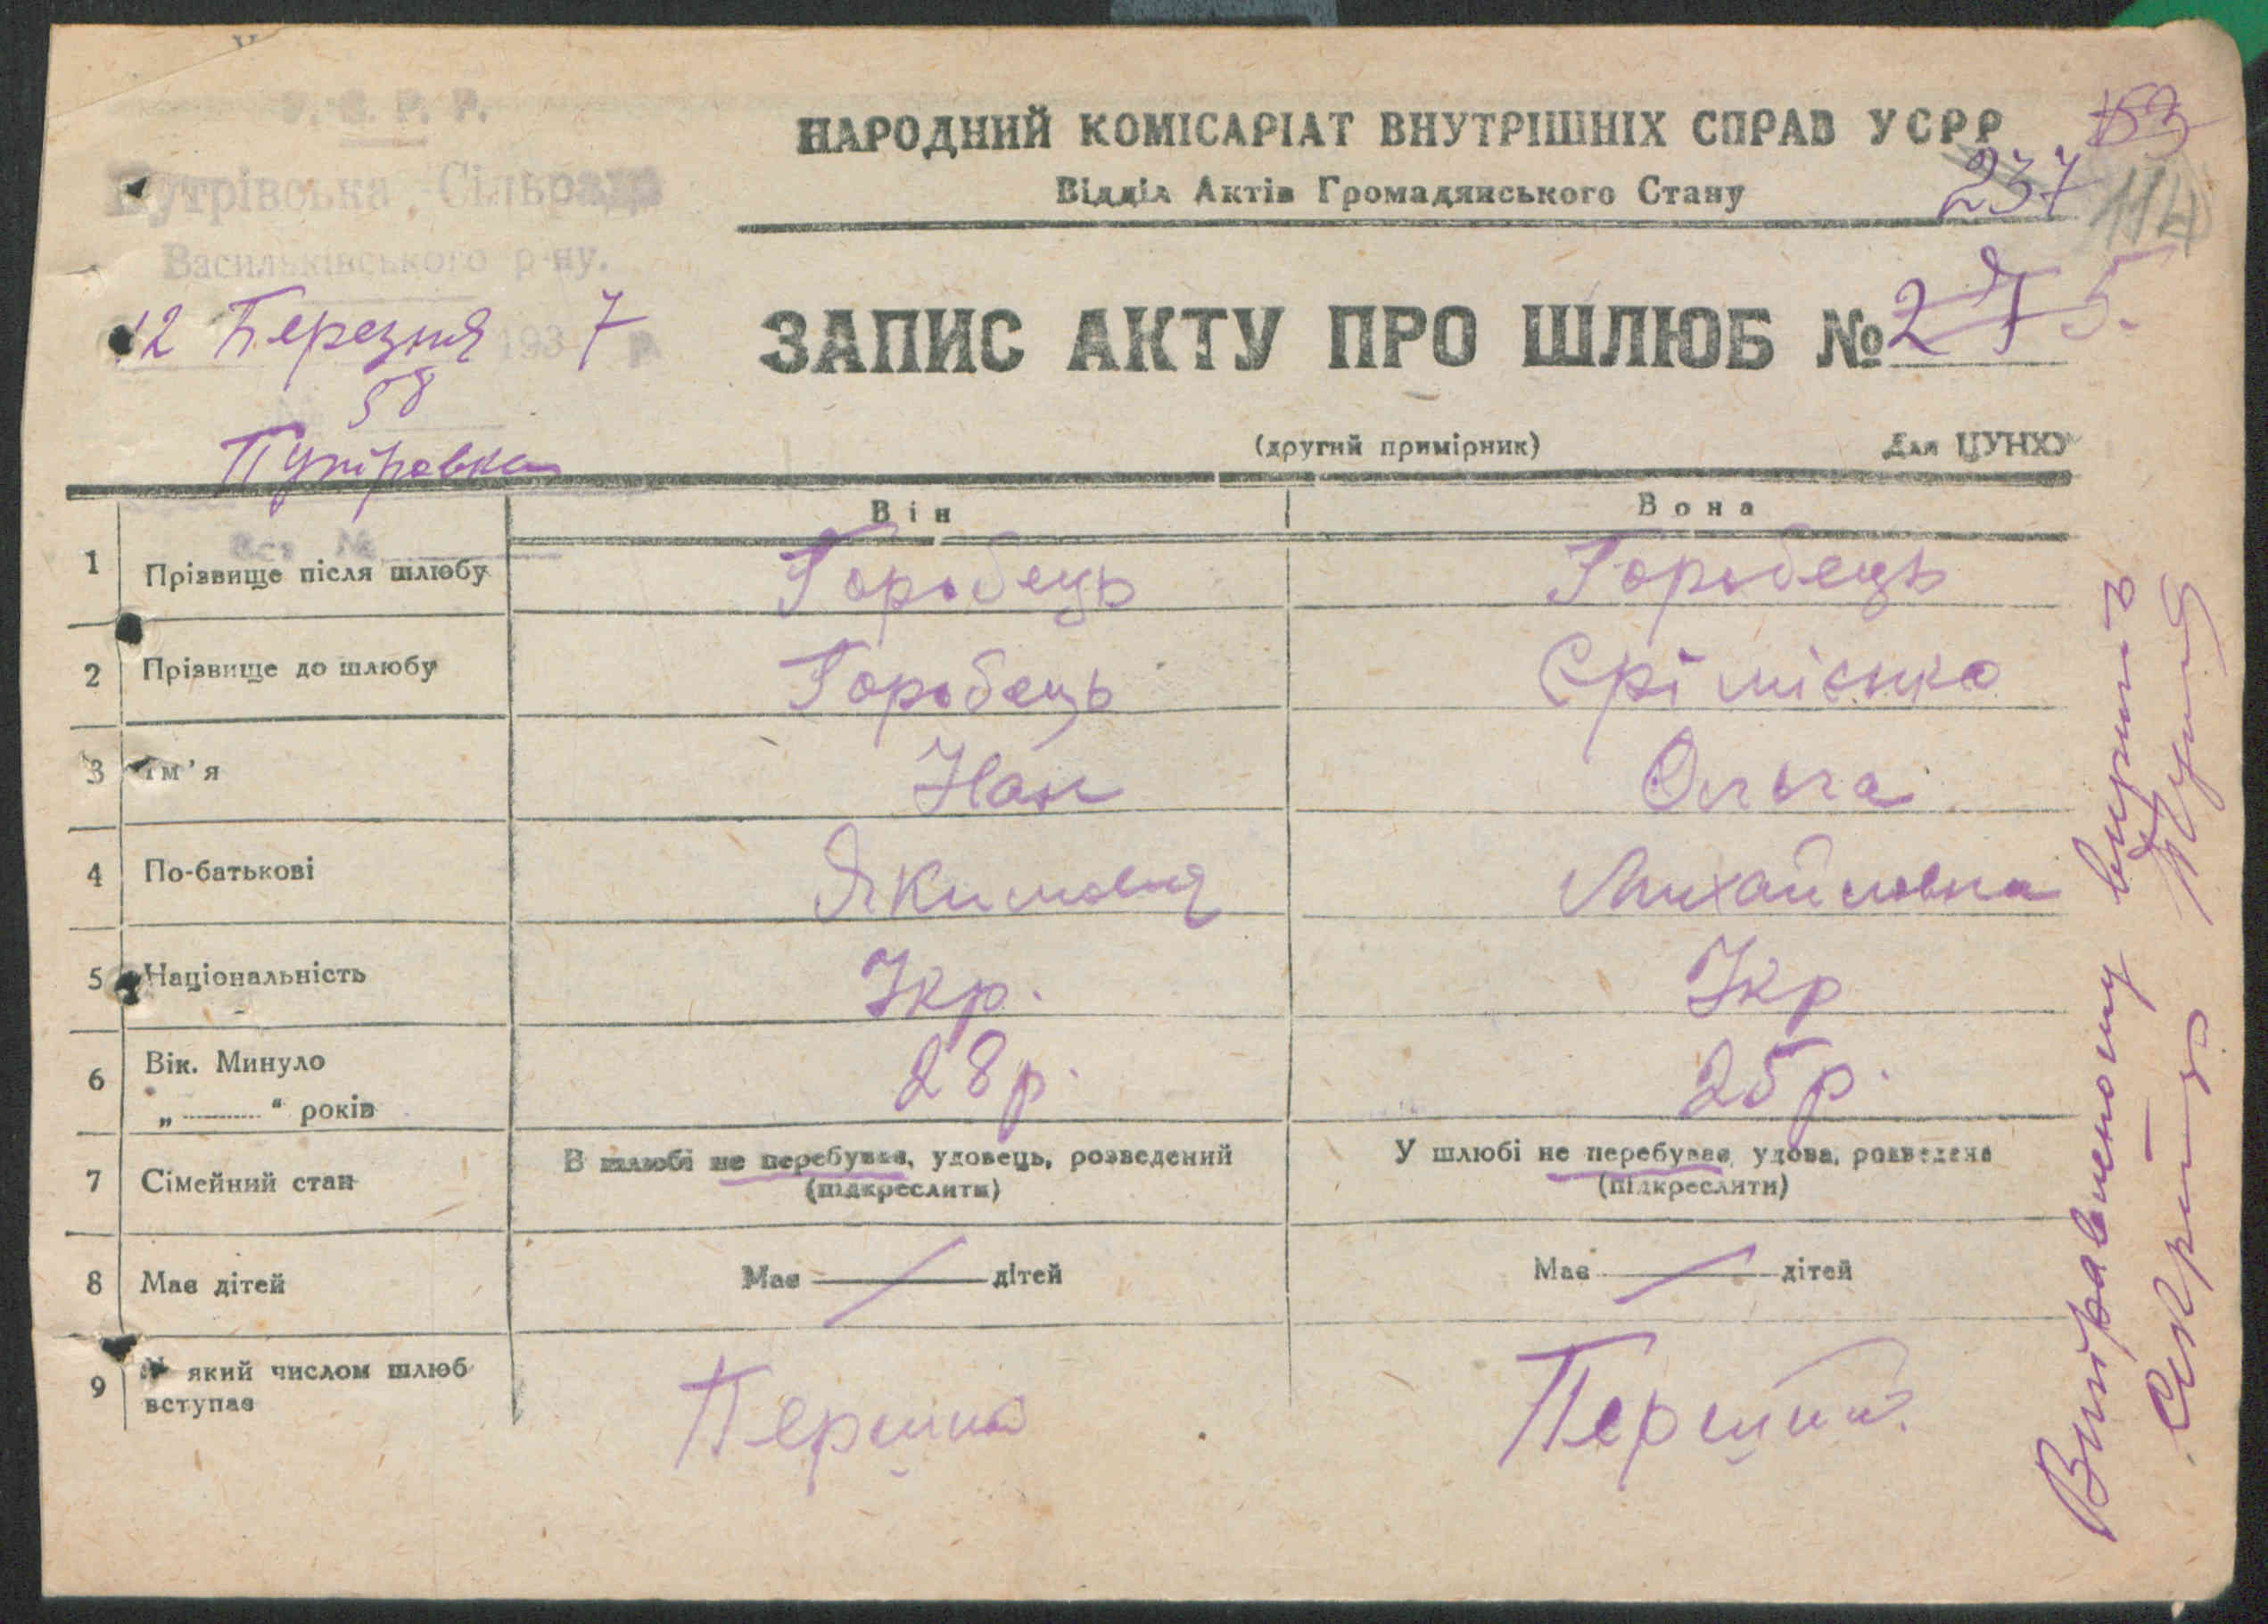 У. С. Р. Р.
Путрівська Сільрада
Васильківського р-ну.
12 Березня 1937 р.
№ 58
Путровка
Вст. №
НАРОДНИЙ КОМІСАРІАТ ВНУТРІШНІХ СПРАВ УСРР
Відділ Актів Громадянського Стану
53
237
114
ЗАПИС АКТУ ПРО ШЛЮБ № 5.
(другий примірник) Для ЦУНХУ
Він Вона
1 Прізвище після шлюбу Горобець Горобець
2 Прізвище до шлюбу Горобець
3 Ім'я Ольга
4 По-батькові Якимовия Михайловна
5 Національність Укр. Укр
6 Вік. Минуло 28 р. 25 р.
„ “ років
7 Сімейний стан В шлюбі не перебував, удовець, розведений У шлюбі не перебувала, удова, розведена
(підкреслити) (підкреслити)
8 Має дітей Має дітей Має дітей
9 В який числом шлюб Перший Перший
вступає
Виправленому вирить